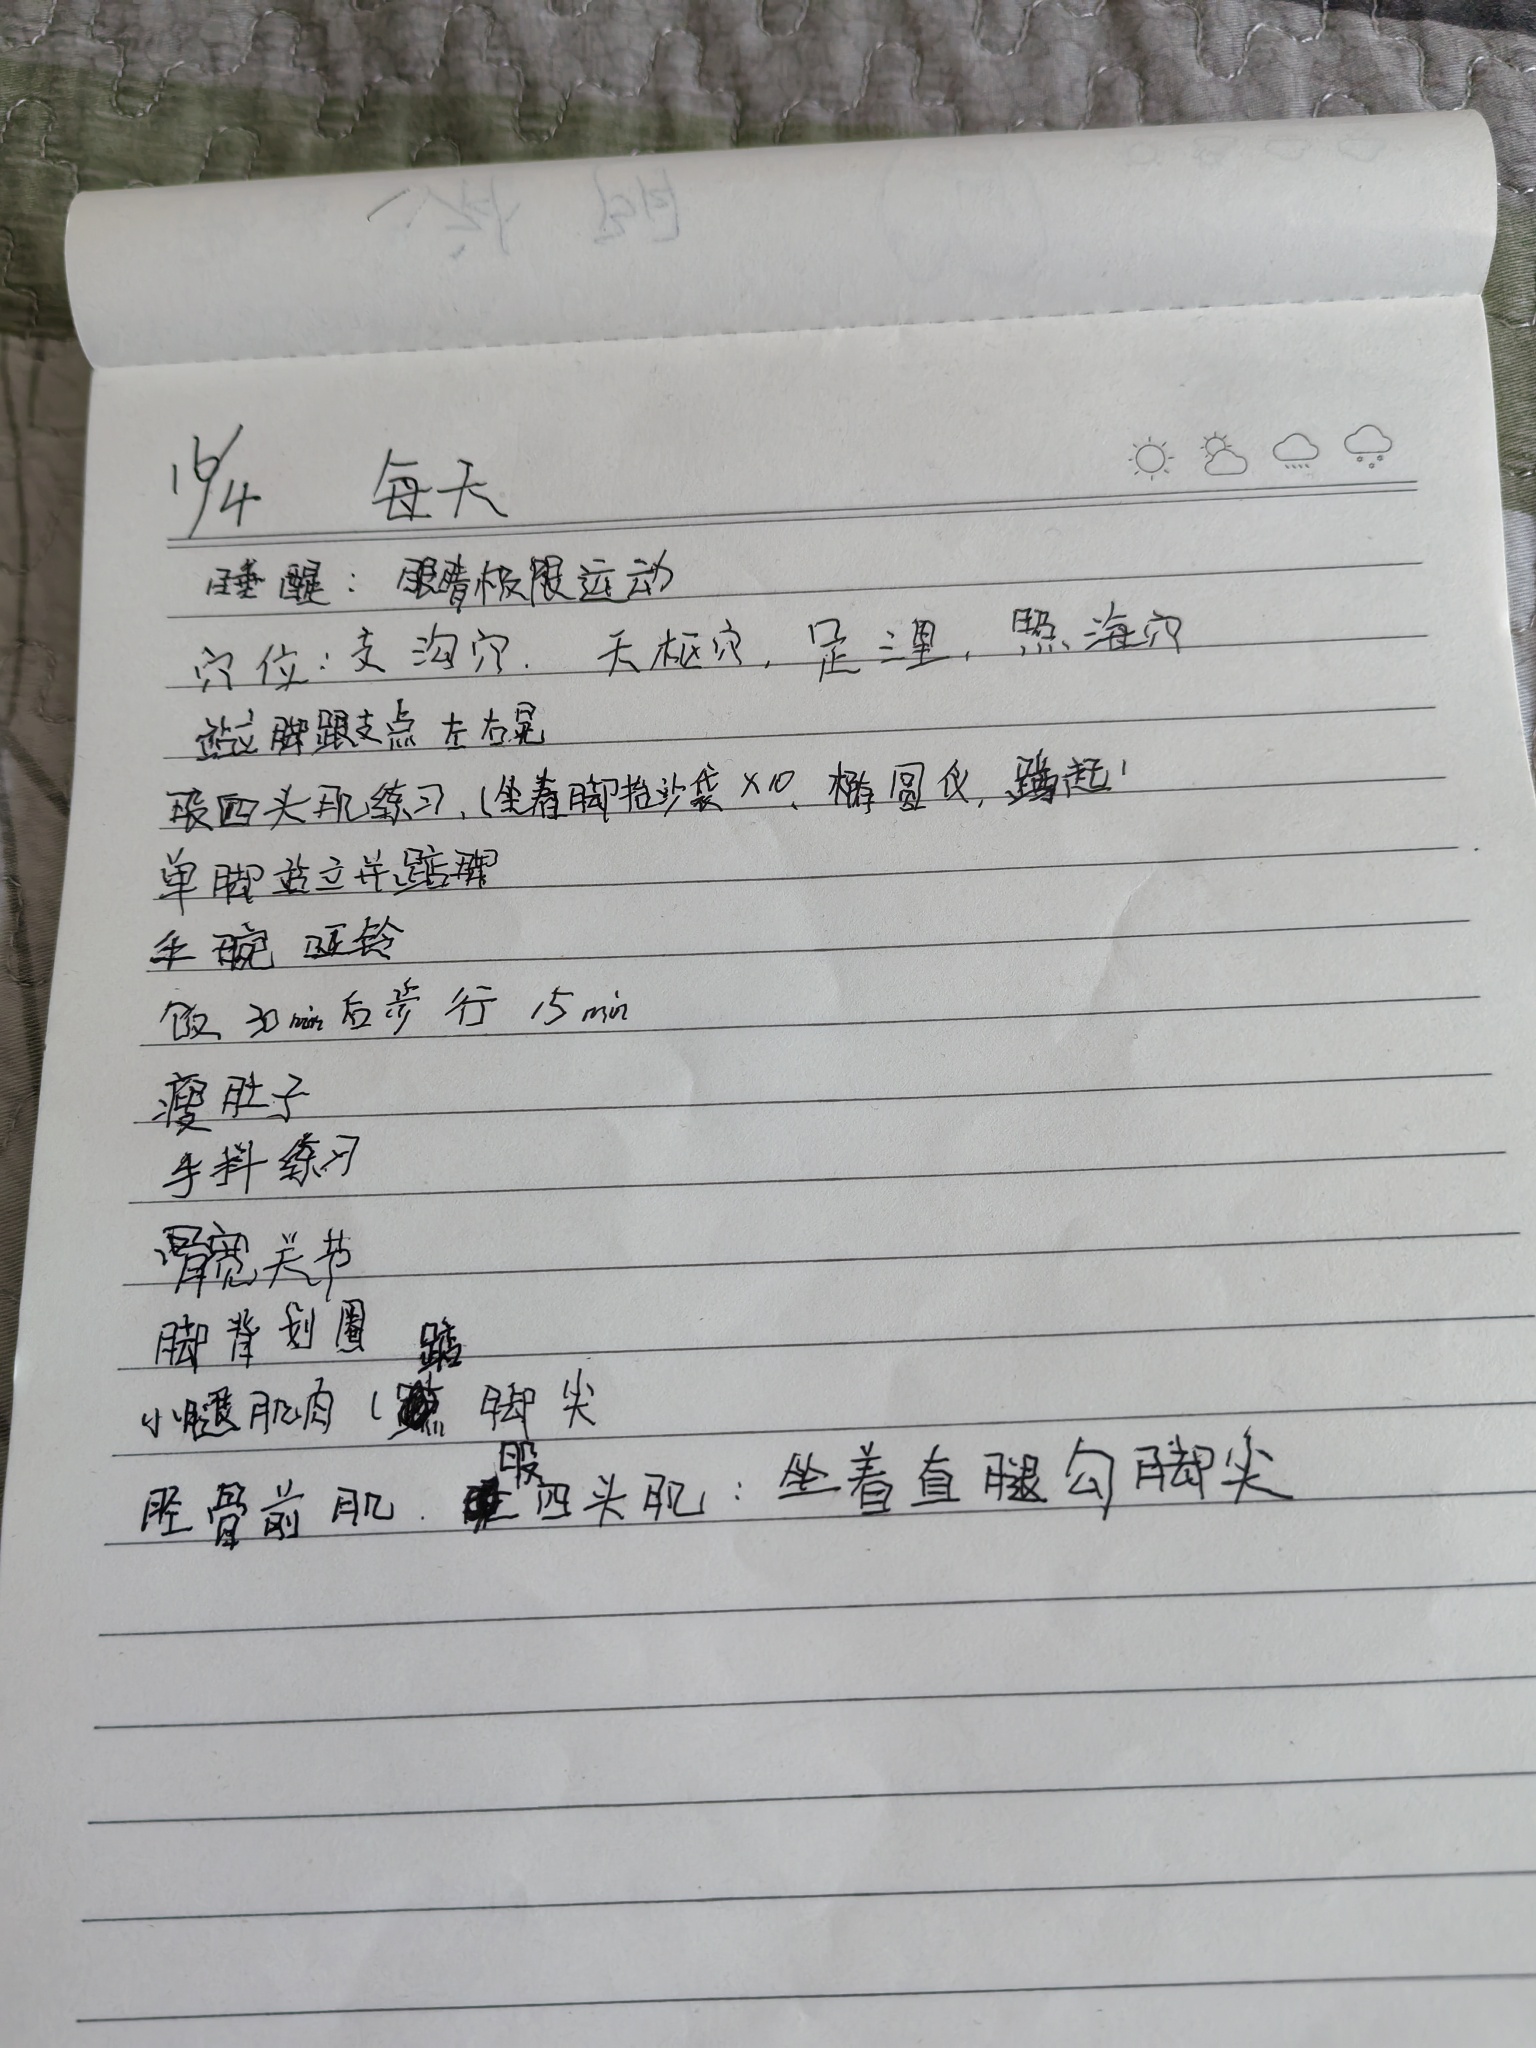 16/4 每天
睡醒：眼睛极限运动
穴位：支沟穴．天枢穴，足三里，照海穴
站立脚跟支点左右晃
股四头肌练习，(坐着脚抬沙袋×10、椭圆仪，蹲起)
单脚站立并踮脚
手腕 哑铃
饭30min后步行 15min
瘦肚子
手抖练习
髋关节
脚背划圈
小腿肌肉(踮脚尖
胫骨前肌．股四头肌：坐着直腿勾脚尖